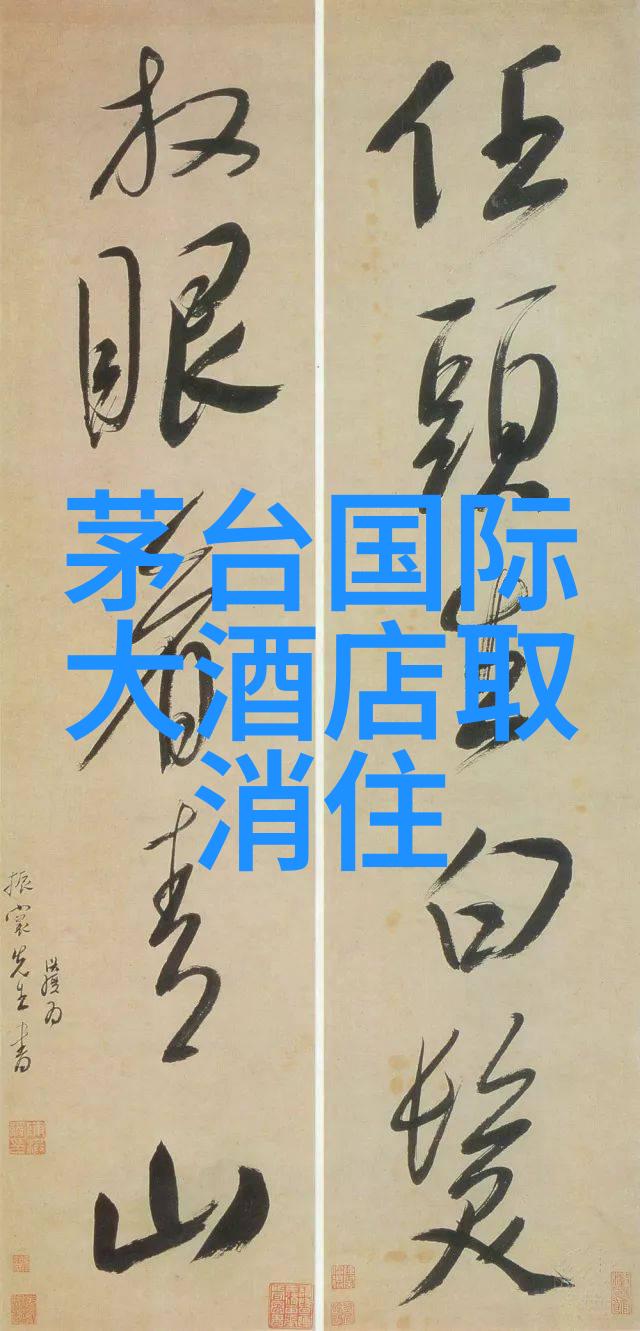 茅台国际
大酒店取
消住
任頭白髮
放眼看青山
洪綬為
振裳先生書